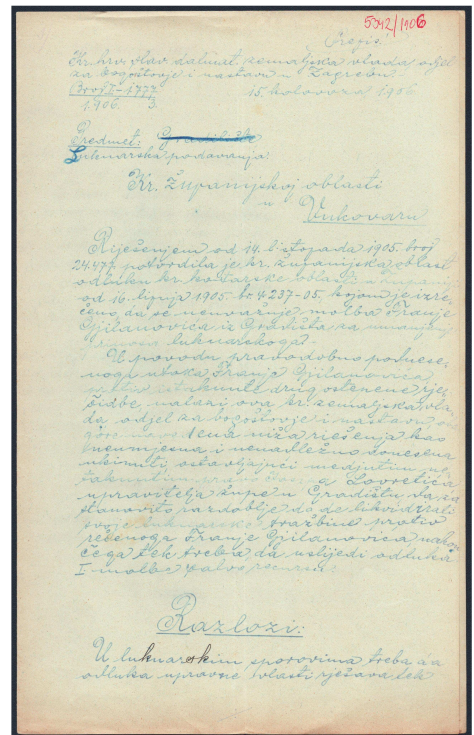 5342/1906
Prepis.
Kr. hrv. slav. dalmat. zemaljska vlada, odjel
za bogoštovje i nastavu u Zagrebu.
Broj II-1777
1906. 3
15. kolovoza 1906
Predmet: Gradište
Luknarska podavanja.
Kr. županijskoj oblasti
u
Vukovaru
Riješenjem od 14. listopada 1905. broj
potvrdila je kr. županijska oblast
odluku kr. kotarske oblasti u Županji
od 16. lipnja 1905. br. 4.237-05. kojom je izre-
čeno da se neuvažuje molba Franje
Gjilanovića iz Gradišta za
luknarskoga.
U povodu pravodobno podnese-
noga utoka Franje Gjilanovića
protiv istaknute drugostepene rje-
šidbe, nalazi ova kr. zemaljska vla-
da odjel za bogoštovje i nastavu
gore navedena niža riešenja kao
neumjesna i nenadležno donesena
ukinuti, ostavljajući medjutim
Lovretića
upravitelja župe u Gradištu da za
stanovito razdoblje dade likvidirati
svoje luknarske tražbine protiv
rečenoga Franje Gjilanovića, nakon
čega tek treba da uslijedi odluka
I molbe
Razlozi:
U luknarskim sporovima treba da
odluka upravne vlasti rješava tek